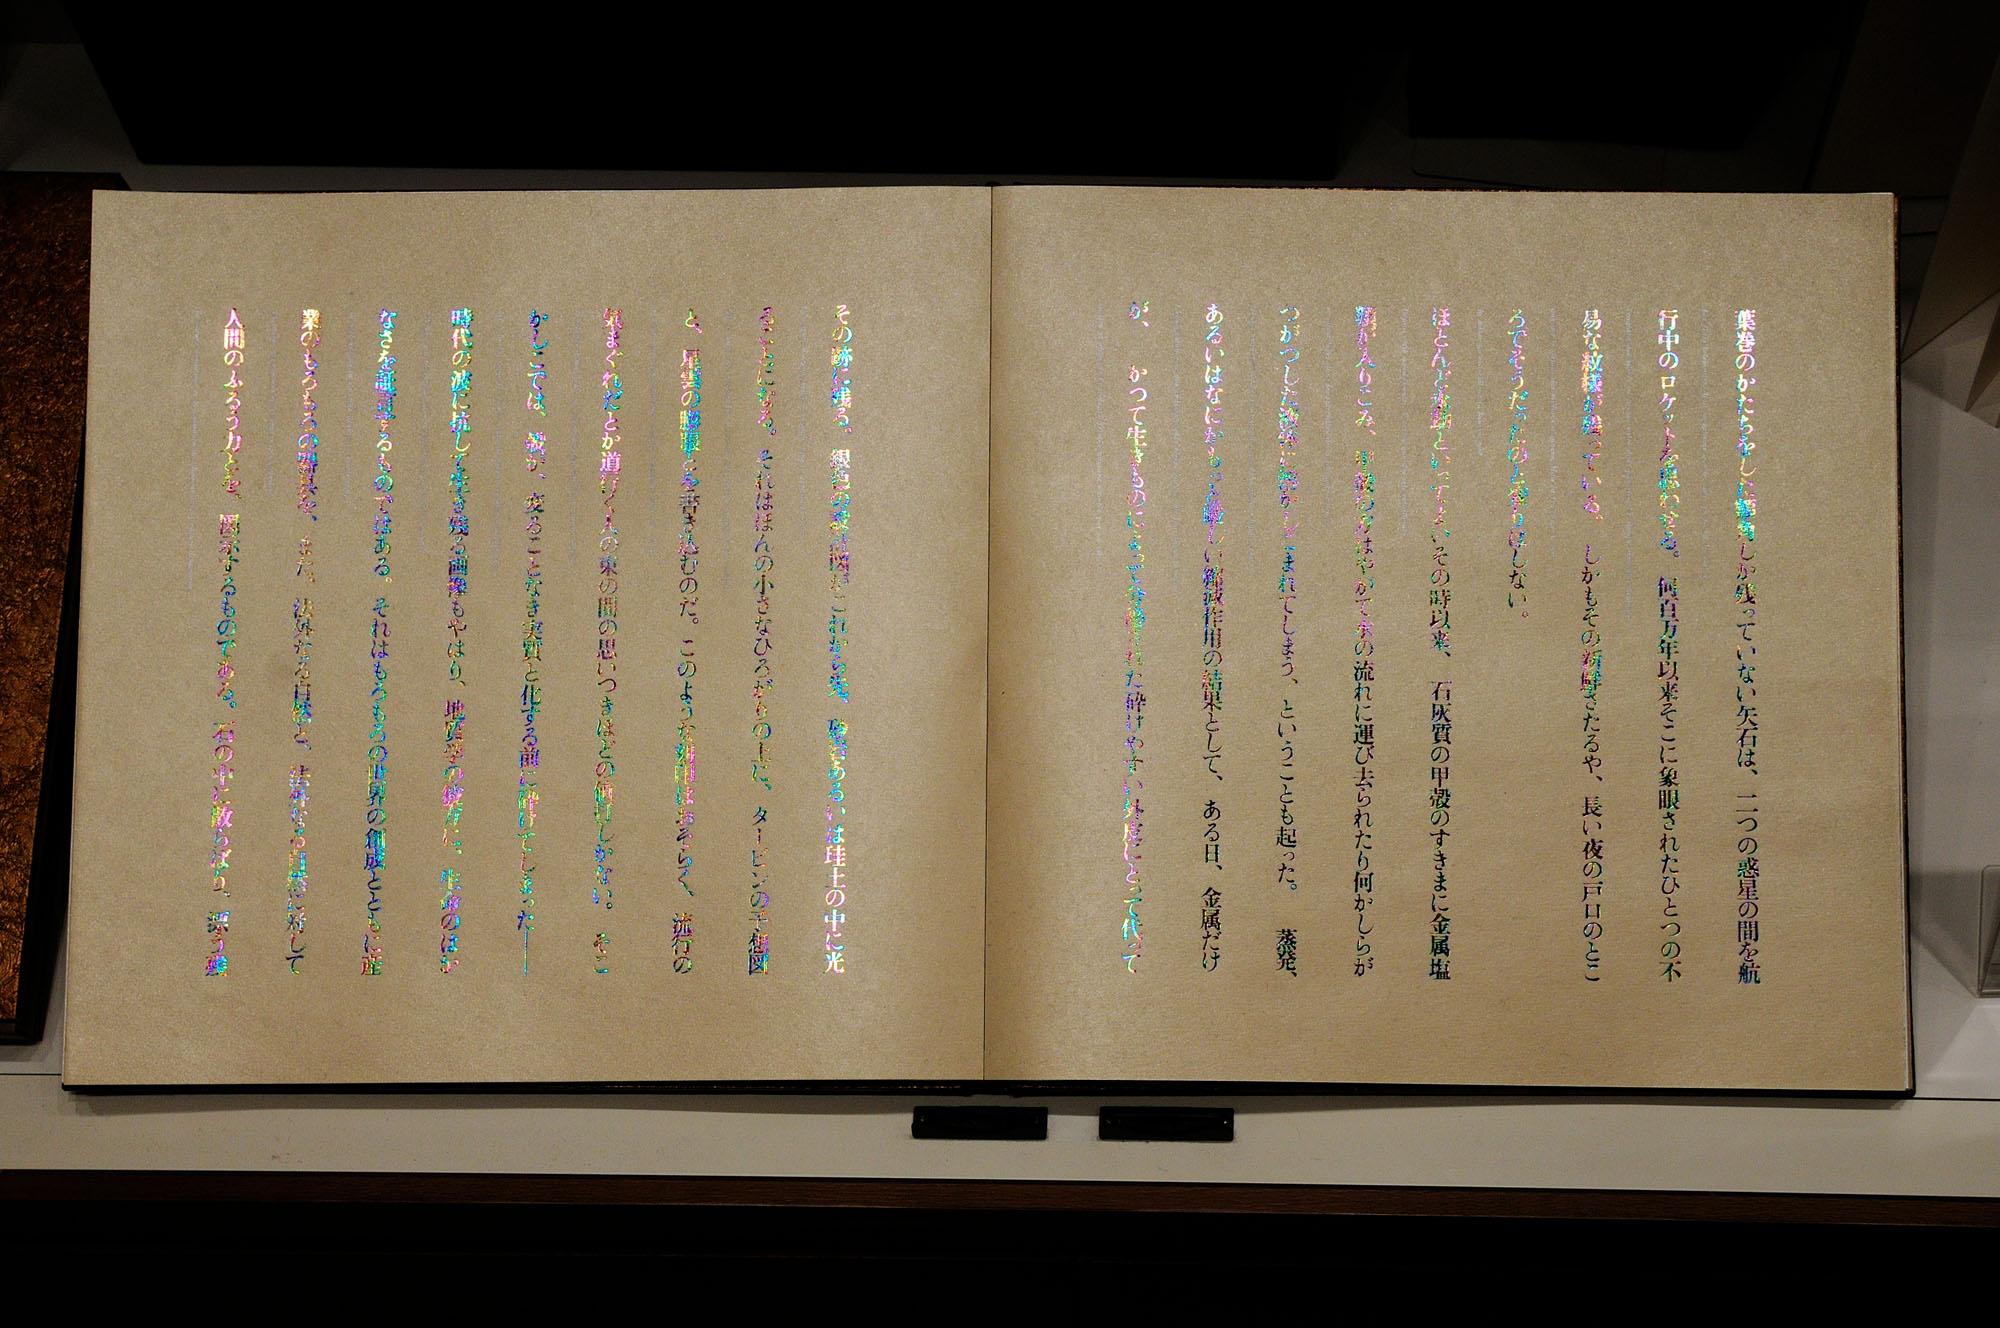 葉巻のかたちをした輪郭しか残っていない矢石は、二つの惑星の間を航
行中のロケットを思わせる。何百万年以来そこに象眼されたひとつの不
易な紋様が残っている。しかもその新鮮さたるや、長い夜の戸口のとこ
ろでそうだったのと変りはしない。
ほとんど実験といってよいその時以来、石灰質の甲殻のすきまに金属塩
類が入りこみ、甲殻の方はやがて水の流れに運び去られたり何かしらが
つがつした液体に溶かしこまれてしまう、ということも起った。蒸発、
あるいはなにかもっと難しい縮減作用の結果として、ある日、金属だけ
が、かつて生きものによって分泌された砕けやすい外皮にとって代って
その跡に残る。銀色の設計図がこれから先、砂岩あるいは珪土の中に光
ることになる。それはほんの小さなひろがりの上に、タービンの予想図
と、星雲の膨脹とを書き込むのだ。このような刻印はおそらく、流行の
気まぐれだとか道行く人の束の間の思いつきほどの値打しかない。そこ
かしこでは、殻が、変ることなき実質と化する前に砕けてしまった――
時代の波に抗して生き残る画像もやはり、地質学の彼方に、生命のはか
なさを証言するものではある。それはもろもろの世界の創成とともに産
業のもろもろの器具を、また、法外なる自然と、法外なる自然に対して
人間のふるう力とを、図示するものである。石の中に散らばり、漂う残